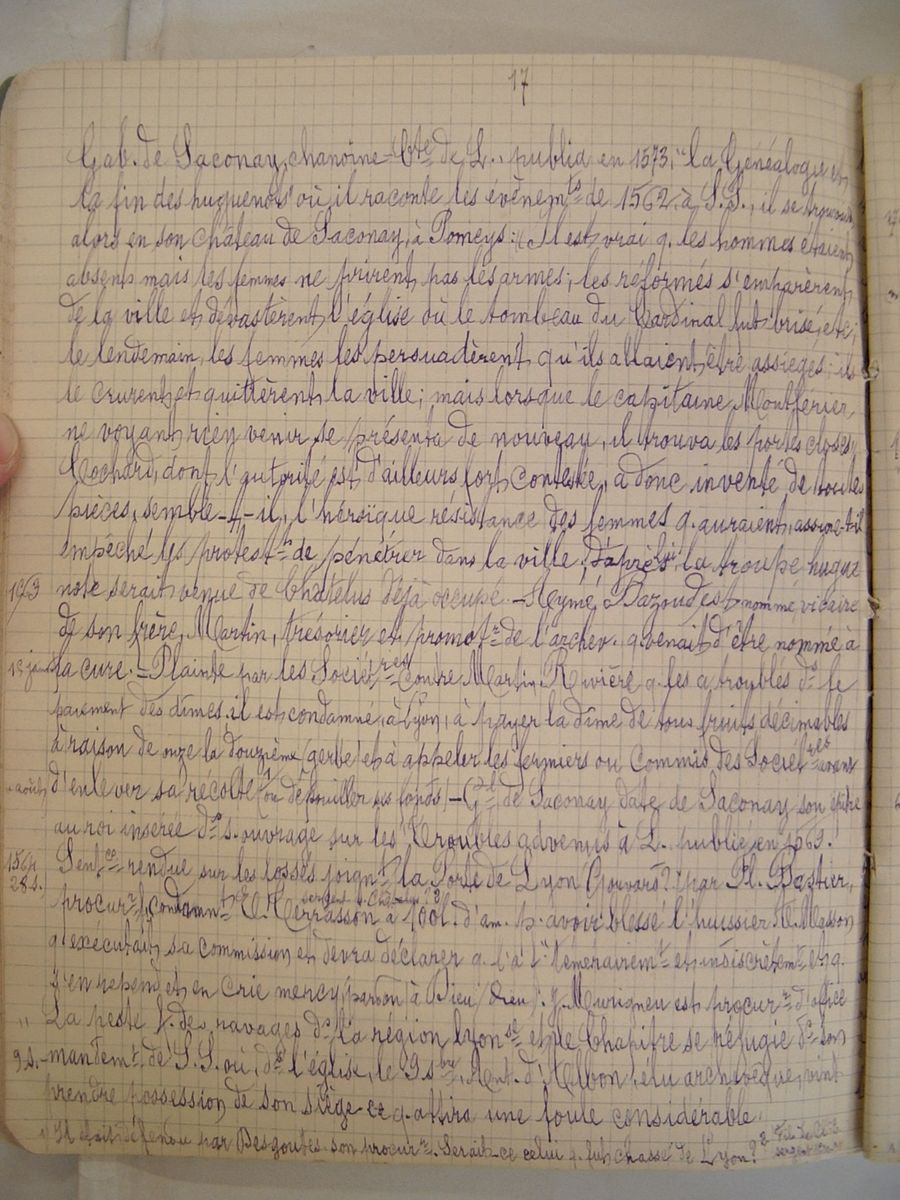 17
Gab. de Saconay, chanoine-Cte de L., publia en 1573, "la Généalogie et
la fin des huguenots" où il raconte les évènemts de 1562 à S.S., il se trouvait
alors en son château de Saconay, à Pomeys : Il est vrai q. les hommes étaient
absents mais les femmes ne prirent pas les armes ; les réformés s'emparèrent
de la ville et dévastèrent l'église où le tombeau du Cardinal fut brisé, etc ;
le lendemain, les femmes les persuadèrent qu'ils allaient être assiégés ; ils
le crurent et quittèrent la ville ; mais lorsque le capitaine Montférier,
ne voyant rien venir se présenta de nouveau, il trouva les portes closes.
Cochard, dont l'autorité est d'ailleurs fort contestée, a donc inventé de toutes
pièces, semble-t-il, l'héroïque résistance des femmes q. auraient, assure-t-il
empêché les protestts de pénétrer dans la ville ; d'après lui la troupe hugue
note serait venue de Châtelus déjà occupé. – Aymé Bazoudest nommé vicaire
1563
de son frère, Martin, trésorier et promotr de l'archev. q. venait d'être nommé à
la cure. – Plainte par les Sociétres contre Martin Rivière q. les a troublés ds le
paiement des dîmes. il est condamné, à Lyon, à payer la dîme de tous fruits décimables
à raison de onze la douzième (gerbe) et à appeler les fermiers ou Commis des Sociétres avant
d'enlever sa récolte (ou dépouiller ses fonds) – Gel de Saconay date de Saconay son épitre
août
au roi insérée ds s. ouvrage sur les "Troubles advenus à L. publié en 1569.
1564
28 s.
Sentce rendue sur les fossés joignt la Porte de Lyon (Gouvard?) par Pl. Bastier,
procurr f. condamnt E. Terrasson à 100 l. d'am. p. avoir blessé l'huissier A. Masson
q. exécutait sa commission et devra déclarer q. l'a f. "témérairemt et indiscrètemt et q.
s'en repend et en crie mercy, pardon à Dieu". J. Murigneu est procurr d'office
" La peste f. des ravages ds la région lyonse et le Chapitre se réfugie ds son
9 s.
mandemt de S.S. où, ds l'église, le 9 sbre, Ant. d'Albon, élu archevêque, vint
prendre possession de son siège ce q. attira une foule considérable.
Il était défendu par Desgoutes son procurr. Serait-ce celui q. fut chassé de Lyon ?